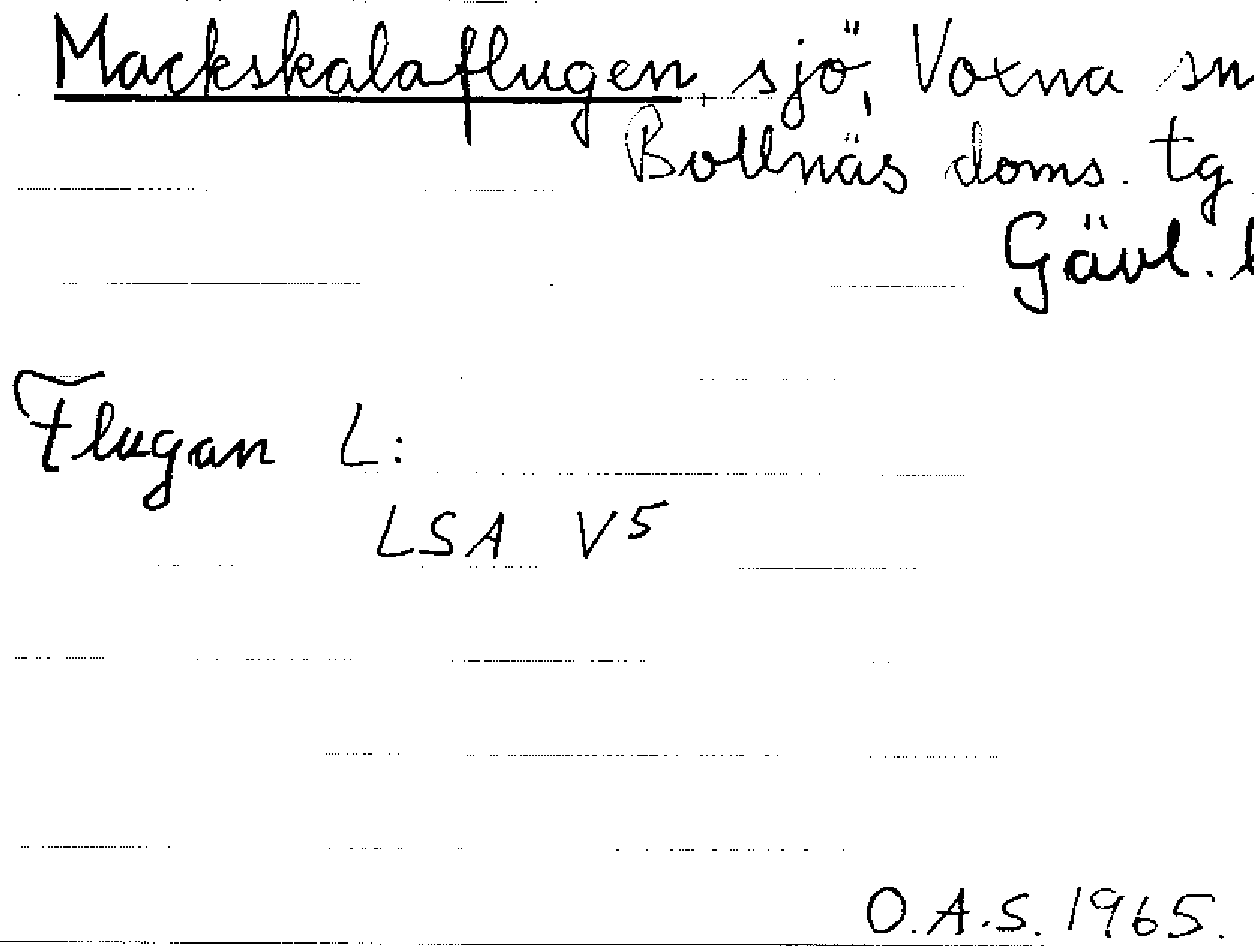 Mackskalaflugen, sjö, Voxna sn
Bollnäs doms. tg.
Gävl. l
Flugan L:
LSA V5
O.A.S. 1965.